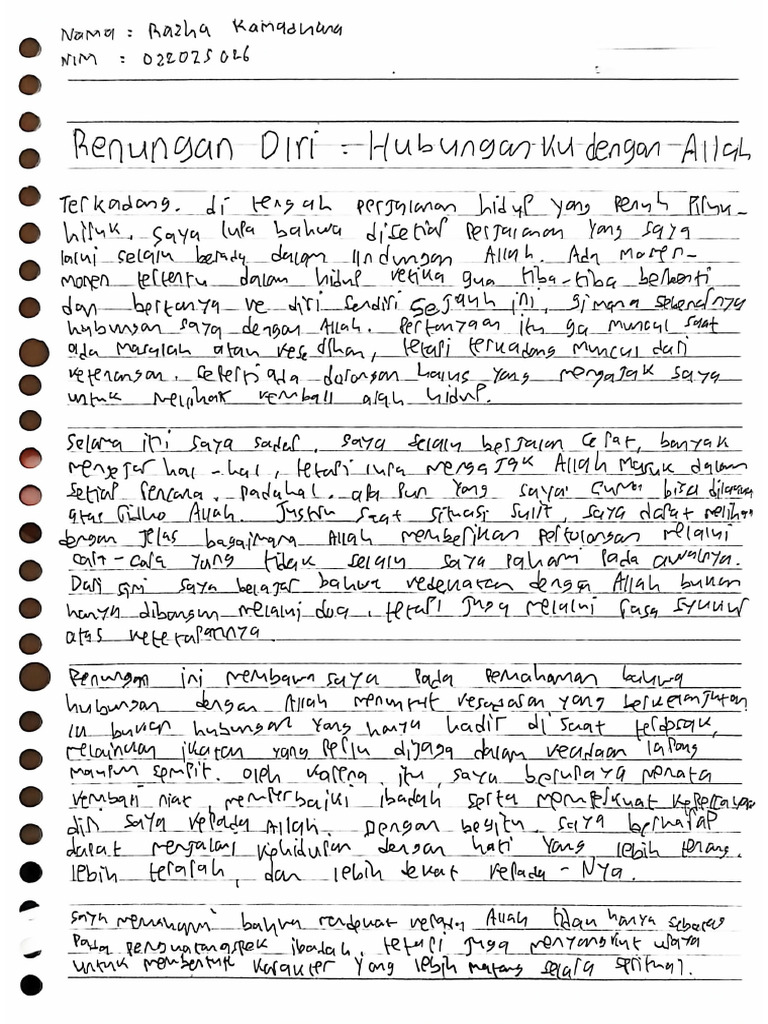 Nama : Razha Kamadhana
NIM : 022025026
Renungan Diri : Hubungan-Ku dengan Allah
Terkadang. di tengah perjalanan hidup yang penuh
hiruk, saya lupa bahwa disetiap perjalanan yang saya
lalui selalu berada dalam lindungan Allah. Ada momen-
momen tertentu dalam hidup ketika gua tiba-tiba berhenti
dan bertanya ke diri sendiri sejauh ini, gimana sebenarnya
hubungan saya dengan Allah. Pertanyaan itu ga muncul saat
ada masalah atau kesedihan, tetapi terkadang muncul dari
ketenangan. Seperti ada dorongan halus yang mengajak saya
untuk melihat kembali arah hidup.
Selama ini saya sadar, saya selalu berjalan cepat, banyak
mengejar hal-hal, tetapi lupa mengajak Allah masuk dalam
setiap rencana. padahal. apa pun yang saya bisa
atas ridho Allah. Justru saat situasi sulit, saya dapat melihat
dengan jelas bagaimana Allah memberikan pertolongan melalui
cara-cara yang tidak selalu saya pahami pada awalnya.
Dari sini saya belajar bahwa kedekatan dengan Allah bukan
hanya dibangun melalui doa, tetapi juga melalui rasa syukur
atas ketetapannya.
Renungan ini membawa saya pada pemahaman bahwa
hubungan dengan Allah menuntut kesadaran yang berkelanjutan
Itu bukan hubungan yang hanya hadir di saat terdesak,
melainkan ikatan yang perlu dijaga dalam keadaan lapang
maupun sempit. oleh karena itu, saya berupaya menata
kembali niat, memperbaiki ibadah serta memperkuat kepercayaan
diri saya kepada Allah. Dengan begitu, saya berharap
dapat menjalani kehidupan dengan hati yang lebih tenang.
lebih terarah, dan lebih dekat kepada-Nya.
Saya memahami bahwa mendekat kepada Allah tidak hanya sebatas
pada penguatan aspek ibadah, tetapi juga menyangkut upaya
untuk membentuk karakter yang lebih matang secara spritual.